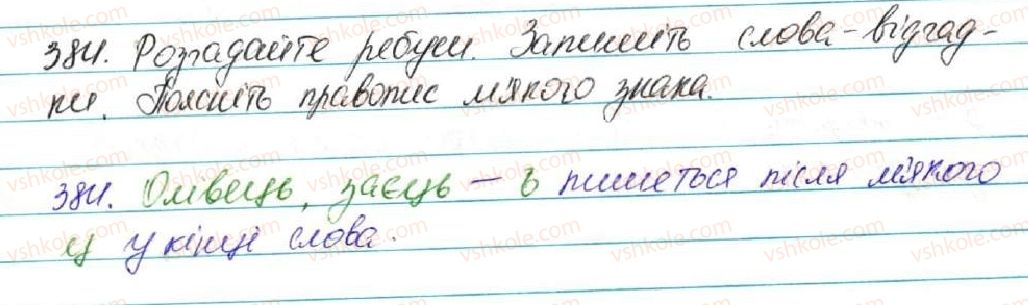 384. Розгадайте ребуси. Запишіть слова-відгад-
ки. Поясніть правопис м'якого знака.
384. Олівець, заєць – ь пишеться після м'якого
ц у кінці слова.